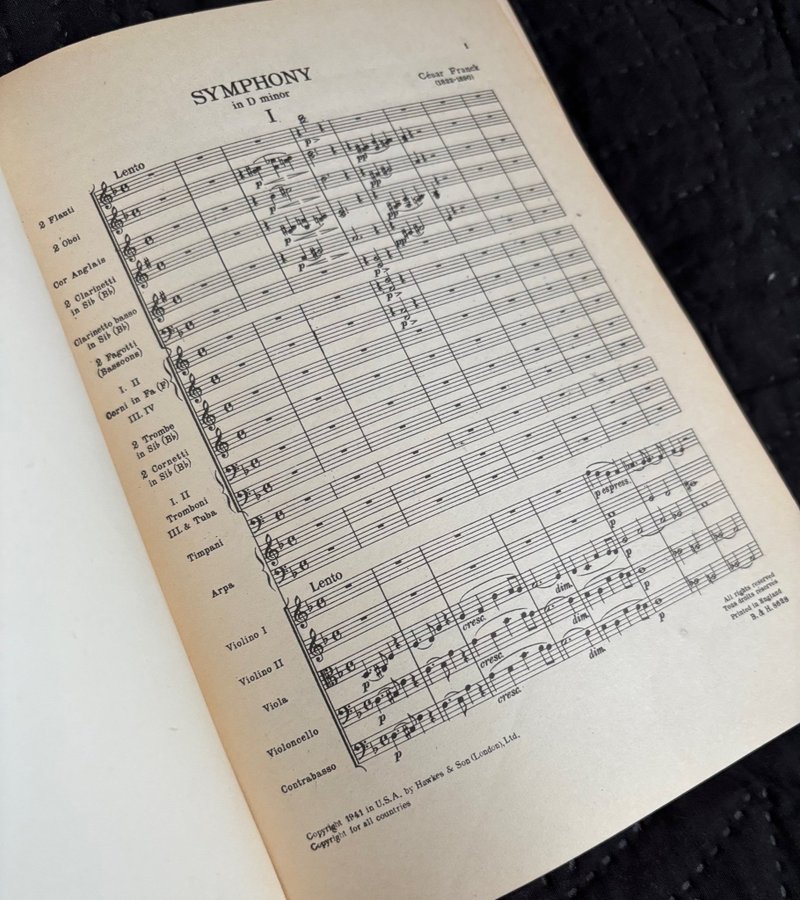 1
SYMPHONY
in D minor
César Franck
(1822-1890)
I
Lento
2 Flauti
2 Oboi
Cor Anglais
2 Clarinetti
in Sib (Bb)
Clarinetto basso
in Sib (Bb)
2 Fagotti
(Bassoons)
I. II
Corni in Fa (F)
III. IV
2 Trombe
in Sib (Bb)
2 Cornetti
in Sib (Bb)
I. II
Tromboni
III. & Tuba
Timpani
Arpa
Violino I
Violino II
Viola
Violoncello
Contrabasso
a2
p
p
p
p
p
pp
pp
pp
pp
p
p
p
Lento
p espress.
p
p
p
p
p
p
p
cresc.
cresc.
cresc.
dim.
dim.
dim.
All rights reserved
Tous droits réservés
Printed in England
B. & H. 8628
Copyright 1941 in U.S.A. by Hawkes & Son (London), Ltd.
Copyright for all countries